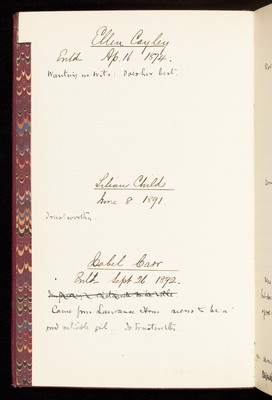 Ellen Cayley
Entd. Ap. 16 1894.
Wanting in wits; does her best.
Lilian Child
June 8 1891.
Trustworthy.
Isabel Carr
Entd Sept 26 1892.
Came from Lawrance Home seems to be a
and reliable girl. Is trustworthy